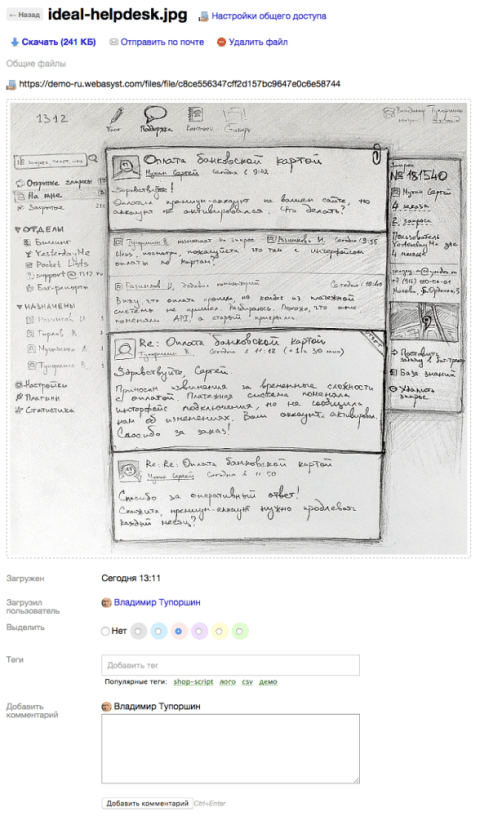 ← Назад ideal-helpdesk.jpg Настройки общего доступа
Скачать (241 КБ) Отправить по почте Удалить файл
Общие файлы
https://demo-ru.webasyst.com/files/file/c8ce556347cff2d157bc9647e0c6e58744
1312
Поддержка
Владимир Тупоршин
Открытые запросы
На мне
Закрытые
ОТДЕЛЫ
Биллинг
YesterdayMe
Pocket Lists
Баг-репорты
НАЗНАЧЕНЫ
Настройки
Плагины
Статистика
Оплата банковской картой
Мухин Сергей Сегодня в 9:02
Здравствуйте!
Оплатил премиум-аккаунт на вашем сайте, но
аккаунт не активировался. Что делать?
Сегодня 9:55
оплаты по картам?
Сегодня 10:40
Вижу, что оплата прошла, но
системы не пришел. Разбираюсь. Похоже, что они
поменяли API, а старый прикрыли.
Re: Оплата банковской картой
Тупоршин В. Сегодня в 11:12 (+1ч 30 мин)
Здравствуйте, Сергей.
Приносим извинения за временные сложности
с оплатой. Платежная система поменяла
интерфейс подключения, но не сообщила
нам об изменениях. Ваш аккаунт активирован.
Спасибо за заказ!
Re: Re: Оплата банковской картой
Мухин Сергей Сегодня в 11:50
Спасибо за оперативный ответ!
Скажите, премиум-аккаунт нужно продлевать
каждый месяц?
Запрос
№181540
Мухин Сергей
4 заказа
2 запроса
Пользователь
YesterdayMe уже
4 месяца
Поставить
База знаний
Удалить
запрос
Загружен Сегодня 13:11
Загрузил
пользователь Владимир Тупоршин
Выделить Нет
Теги Добавить тег
Популярные теги: shop-script лого csv демо
Добавить
комментарий Владимир Тупоршин
Добавить комментарий Ctrl+Enter